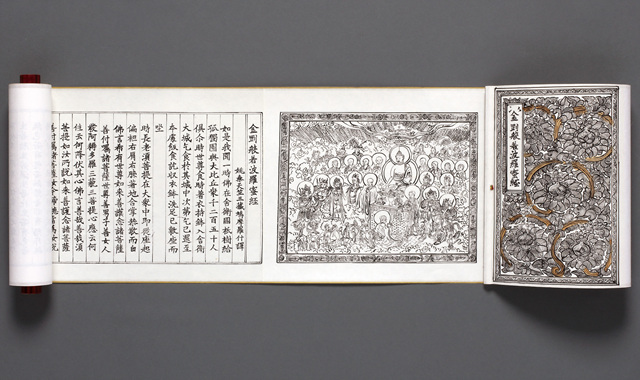 金剛般若波羅蜜經
金剛般若波羅蜜經
姚秦天竺三藏鳩摩羅什譯
如是我聞一時佛在舍衛國祇樹給
孤獨園與大比丘衆千二百五十人
俱尒時世尊食時著衣持鉢入舍衛
大城乞食於其城中次第乞已還至
本處飯食訖收衣鉢洗足已敷座而
坐
時長老須菩提在大衆中即從座起
偏袒右肩右膝著地合掌恭敬而白
佛言希有世尊如來善護念諸菩薩
善付囑諸菩薩世尊善男子善女人
發阿耨多羅三藐三菩提心應云何
住云何降伏其心佛言善哉善哉須
菩提如汝所說如來善護念諸菩薩
善付囑諸菩薩汝今諦聽當爲汝說